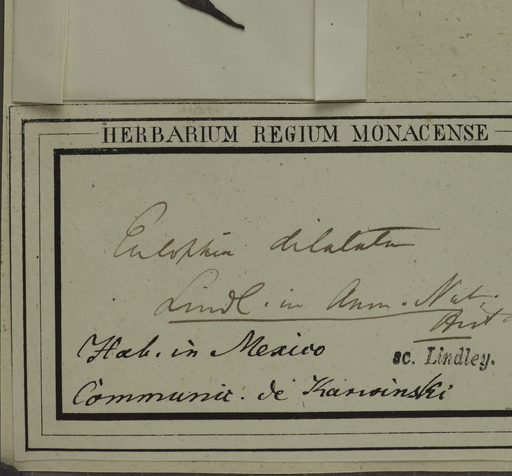 HERBARIUM REGIUM MONACENSE
Eulophia dilatata
Lindl. in Ann. Nat.
Hist
Hab. in Mexico
sc. Lindley.
Communic. de Karwinski